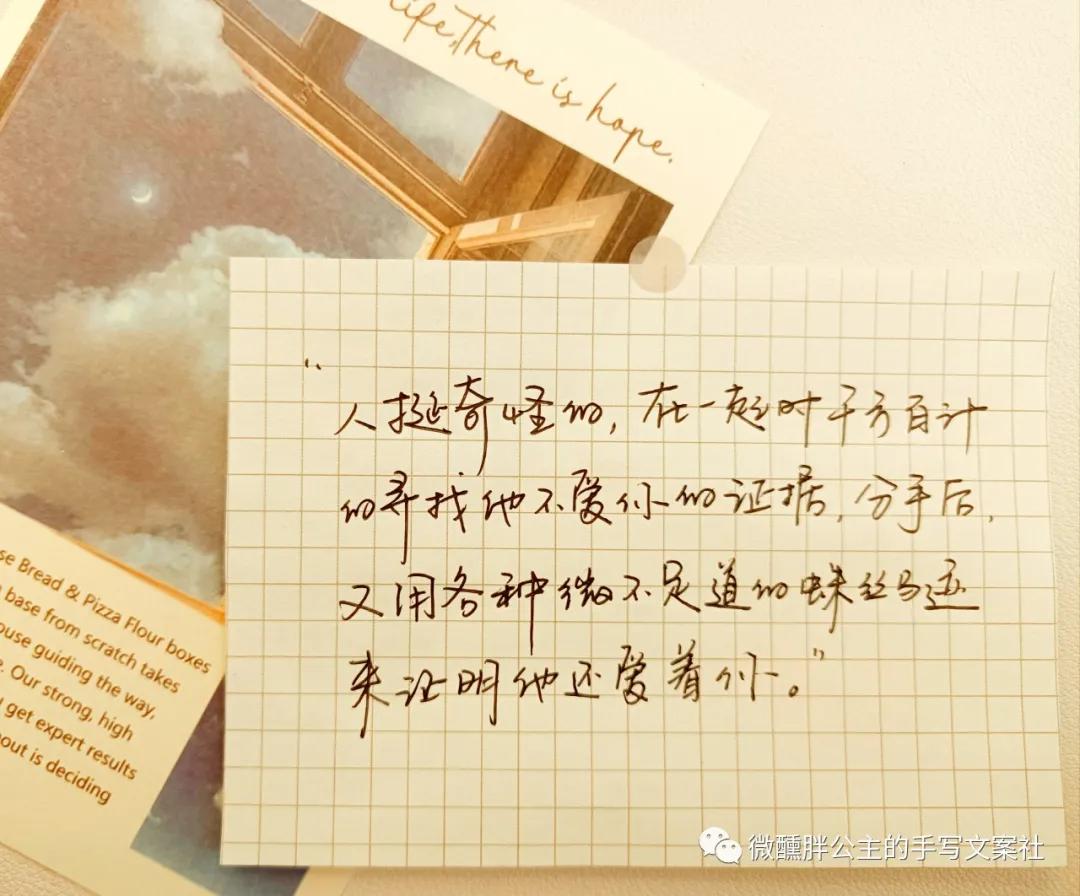 life, there is hope.
“人挺奇怪的,在一起时千方百计
的寻找他不爱你的证据,分手后,
又用各种微不足道的蛛丝马迹
来证明他还爱着你。”
se Bread & Pizza Flour boxes
base from scratch takes
ouse guiding the way,
. Our strong, high
get expert results
out is deciding
微醺胖公主的手写文案社